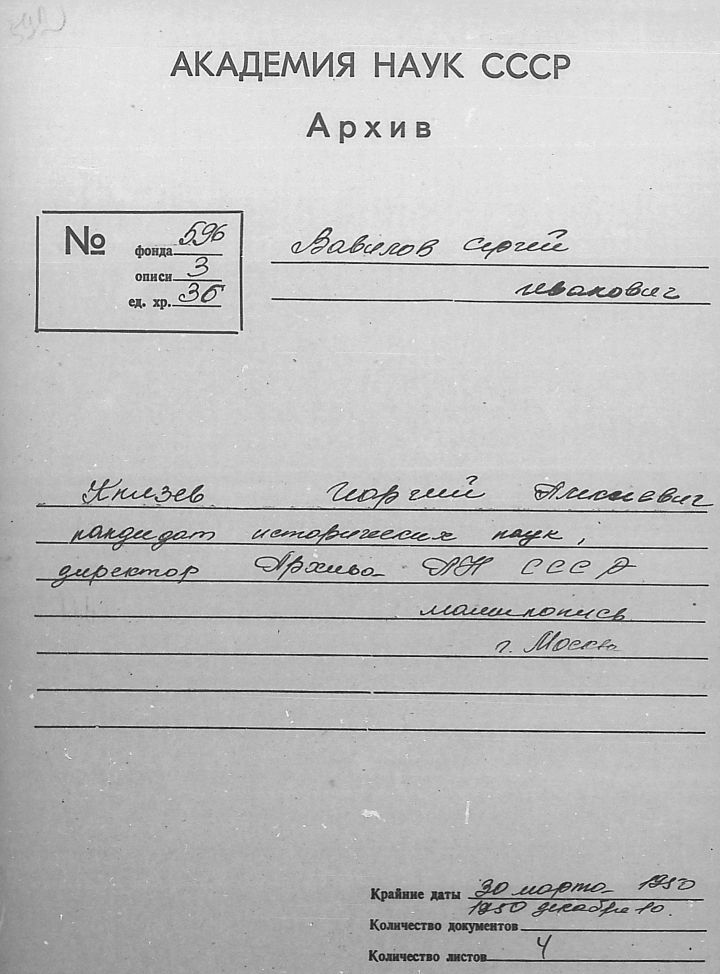 АКАДЕМИЯ НАУК СССР
Архив
№
фонда 596
описи 3
ед. хр. 36
Вавилов Сергей
Иванович
Князев Георгий Алексеевич
кандидат исторических наук,
директор Архива АН СССР
машинопись
г. Москва
Крайние даты 30 марта 1950
1950 декабря 10.
Количество документов
Количество листов 4